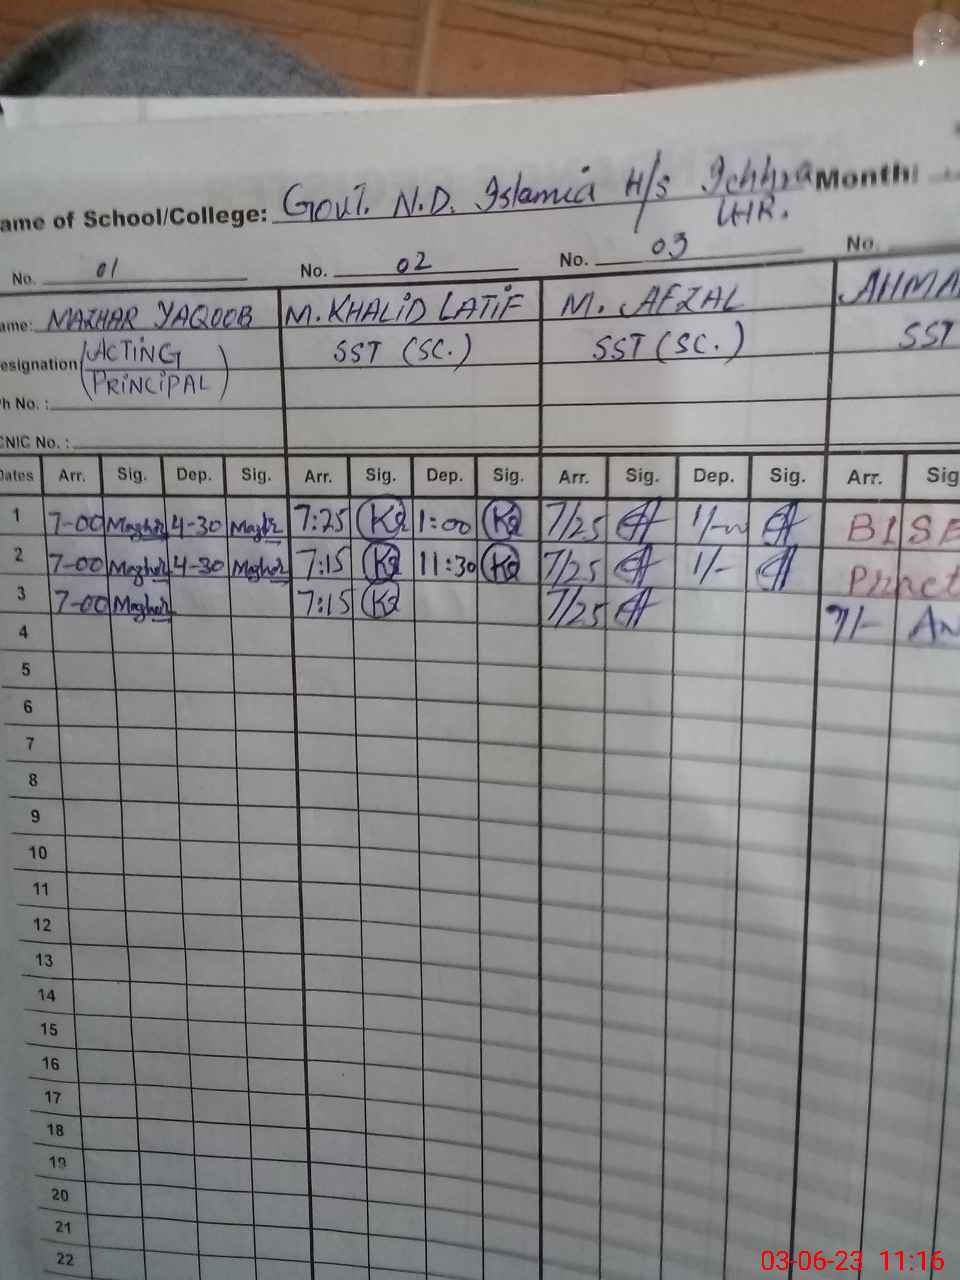 ame of School/College: Govt. N.D. Islamia H/S Ichhra Month:
LHR.
No. 01 No. 02 No. 03 No.
ame: MAZHAR YAQOOB M. KHALID LATIF M. AFZAL AHMA
esignation (ACTING PRINCIPAL) SST (SC.) SST (SC.) SST
h No. :
CNIC No. :
Dates Arr. Sig. Dep. Sig. Arr. Sig. Dep. Sig. Arr. Sig. Dep. Sig. Arr. Sig
1 7-00 Mazhar 4-30 Mazhar 7:25 1:00 7/25 BISE
2 7-00 Mazhar 4-30 Mazhar 7:15 11:30 7/25 1/- Pract
3 7-00 Mazhar 7:15 7/25 7/-
4
5
6
7
8
9
10
11
12
13
14
15
16
17
18
19
20
21
22
03-06-23 11:16